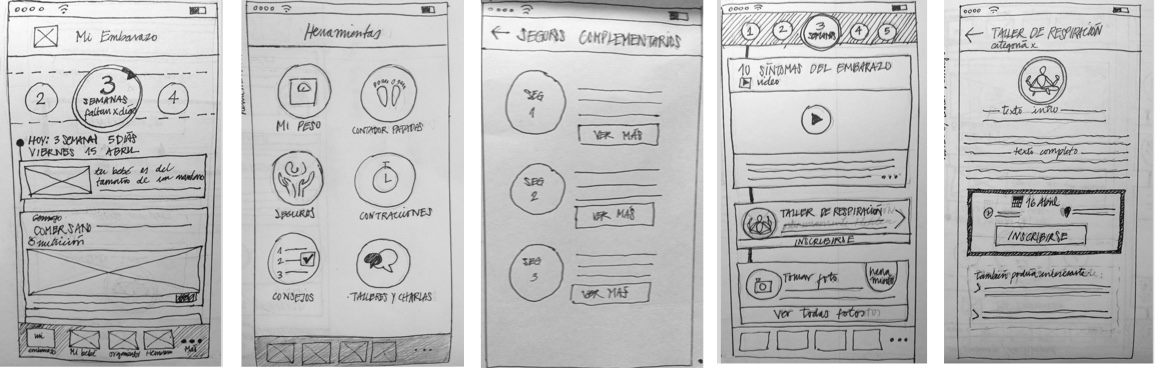 Mi Embarazo
2
3
SEMANAS
faltan x días
4
HOY: 3 SEMANAS 5 DÍAS
VIERNES 15 ABRIL
tu bebé es del
tamaño de un
Consejo
COMER SANO
nutrición
mi
embarazo
Mi bebé
Más
Herramientas
MI PESO
CONTADOR PATADAS
SEGUROS
CONTRACCIONES
1
2
3
CONSEJOS
TALLERES Y CHARLAS
← SEGUROS COMPLEMENTARIOS
SEG
1
VER MÁS
SEG
2
VER MÁS
SEG
3
VER MÁS
1
2
3
SEMANAS
4
5
10 SÍNTOMAS DEL EMBARAZO
video
TALLER DE RESPIRACIÓN
INSCRIBIRSE
Tomar foto
herra
mienta
Ver todas fotos
← TALLER DE RESPIRACIÓN
categoría x
texto intro
texto completo
16 Abril
INSCRIBIRSE
también podría interesarte